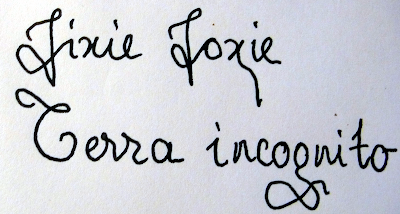 Fixie Foxie
Terra incognito